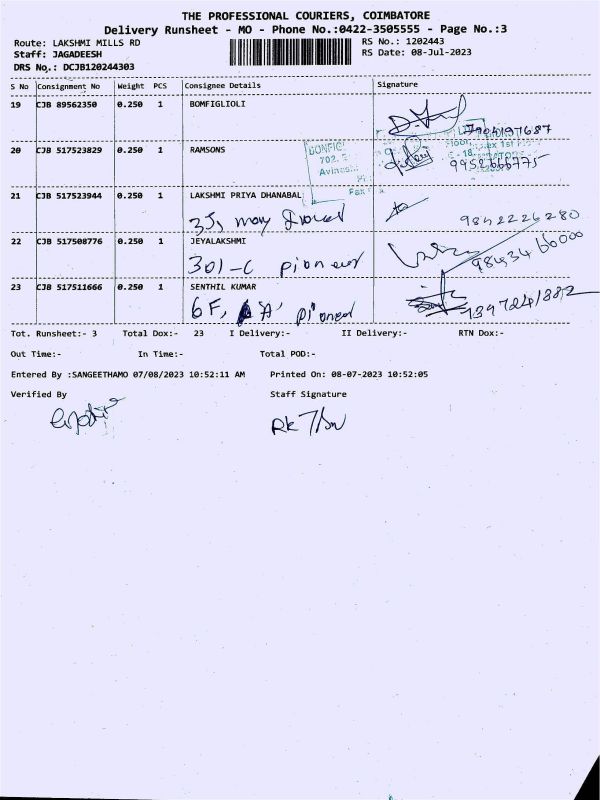 THE PROFESSIONAL COURIERS, COIMBATORE
Delivery Runsheet - MO - Phone No.:0422-3505555 - Page No.:3
Route: LAKSHMI MILLS RD
RS No.: 1202443
Staff: JAGADEESH
RS Date: 08-Jul-2023
DRS No,: DCJB120244303
S No Consignment No Weight PCS Consignee Details Signature
19 CJB 89562350 0.250 1 BOMFIGLIOLI
20 CJB 517523829 0.250 1 RAMSONS
9952666775
702.
Avinas
21 CJB 517523944 0.250 1 LAKSHMI PRIYA DHANABAL
9842226280
22 CJB 517508776 0.250 1 JEYALAKSHMI
301-C pioneer
9843466000
23 CJB 517511666 0.250 1 SENTHIL KUMAR
6F, 'A'
Tot. Runsheet:- 3 Total Dox:- 23 I Delivery:- II Delivery:- RTN Dox:-
Out Time:- In Time:- Total POD:-
Entered By :SANGEETHAMO 07/08/2023 10:52:11 AM Printed On: 08-07-2023 10:52:05
Verified By Staff Signature